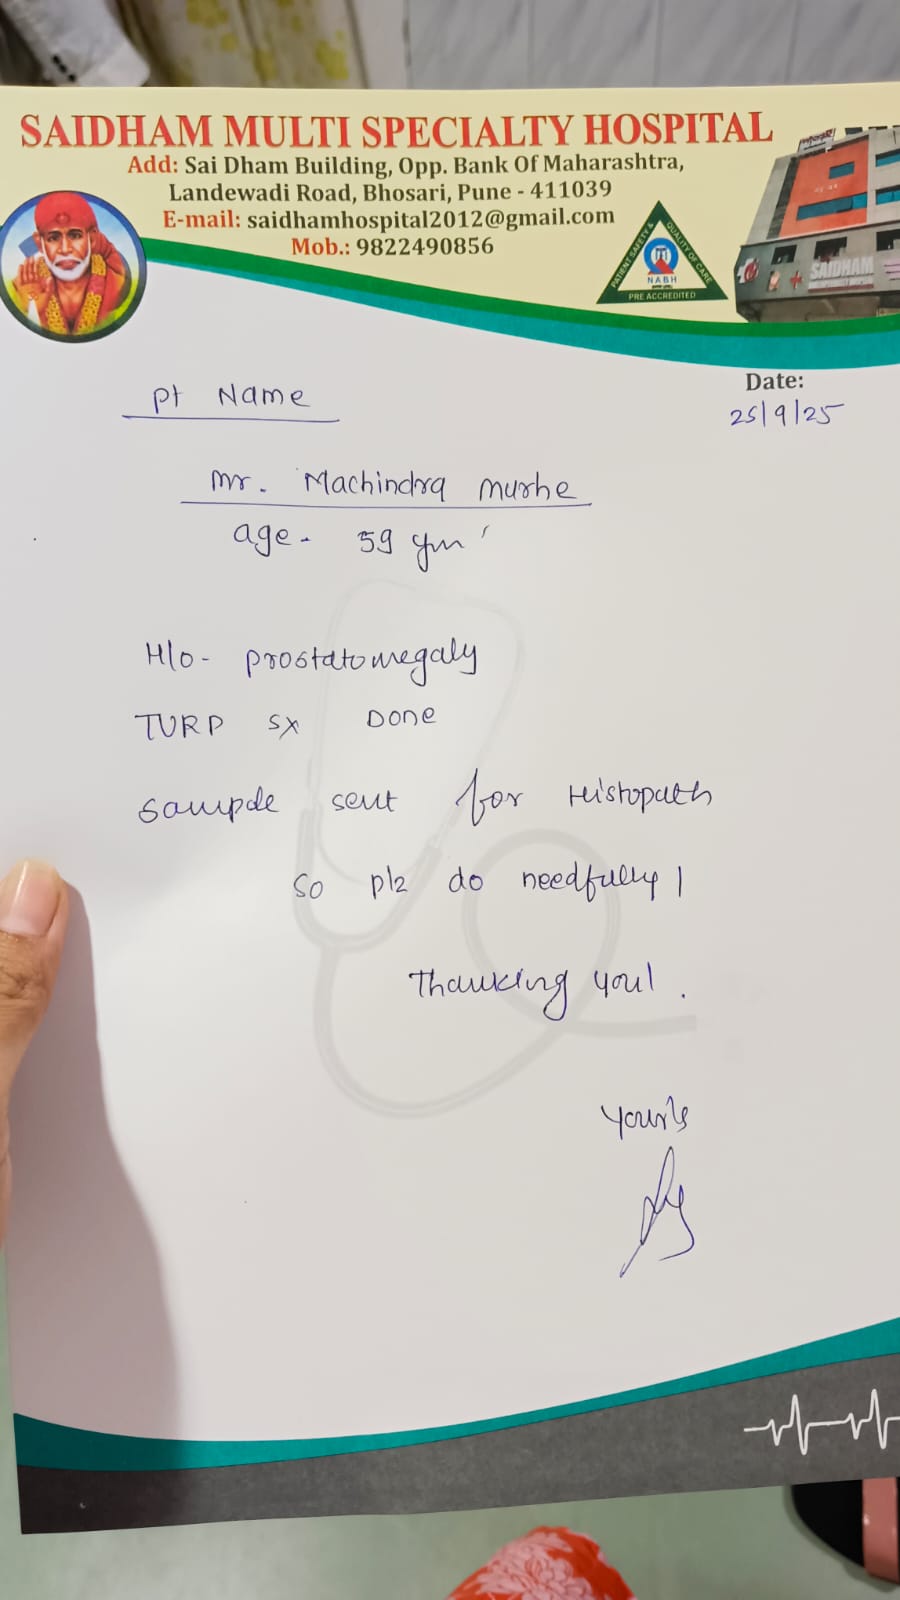 SAIDHAM MULTI SPECIALTY HOSPITAL
Add: Sai Dham Building, Opp. Bank Of Maharashtra,
Landewadi Road, Bhosari, Pune - 411039
E-mail: saidhamhospital2012@gmail.com
Mob.: 9822490856
PATIENT SAFETY & QUALITY OF CARE
NABH
PRE ACCREDITED
SAIDHAM
Date:
25/9/25
Pt Name
Mr. Machindra Murhe
age - 59 
H/o - prostatomegaly
TURP Sx Done
Sample sent for Histopath
So plz do needfully |
Thanking you! .
Your's